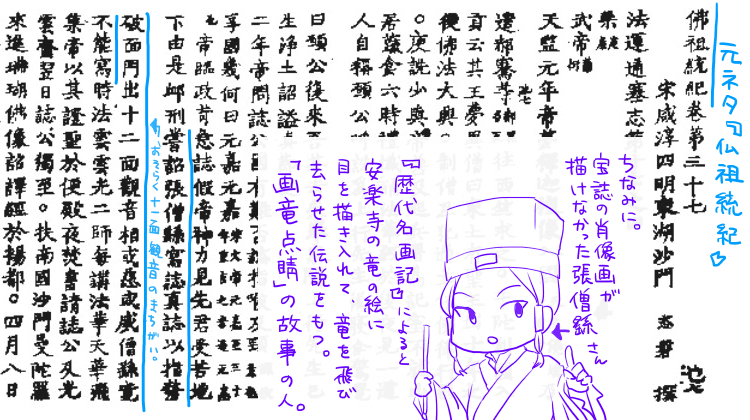 元ネタ『仏祖統紀』
佛祖統紀卷第三十七
宋咸淳四明東湖沙門 志磐 撰
法運通塞志第
梁
武帝
天監元年帝
遣郝騫等
貢云其王夢
復佛法大興
。度說少與
居蔬食六時
人自稱頭公
日頭公後來
生淨土詔謚
二年帝問誌公國有難
享國幾何曰元嘉元嘉
帝臨政苛急誌假帝神力見先君受苦地
下由是卹刑嘗詔張僧繇寫誌真誌以指剺
破面門出十二面觀音相或慈或威僧繇竟
不能寫時法雲雲光二師每講法華天華飛
集帝以其證聖於便殿夜焚書請誌公及光
雲齋翌日誌公獨至。扶南國沙門曼陀羅
來進珊瑚佛像詔譯經於楊都。四月八日
おそらく十一面観音のまちがい。
ちなみに。
宝誌の肖像画が
描けなかった張僧繇さん
『歴代名画記』によると
安楽寺の竜の絵に
目を描き入れて、竜を飛び
去らせた伝説をもつ。
「画竜点睛」の故事の人。